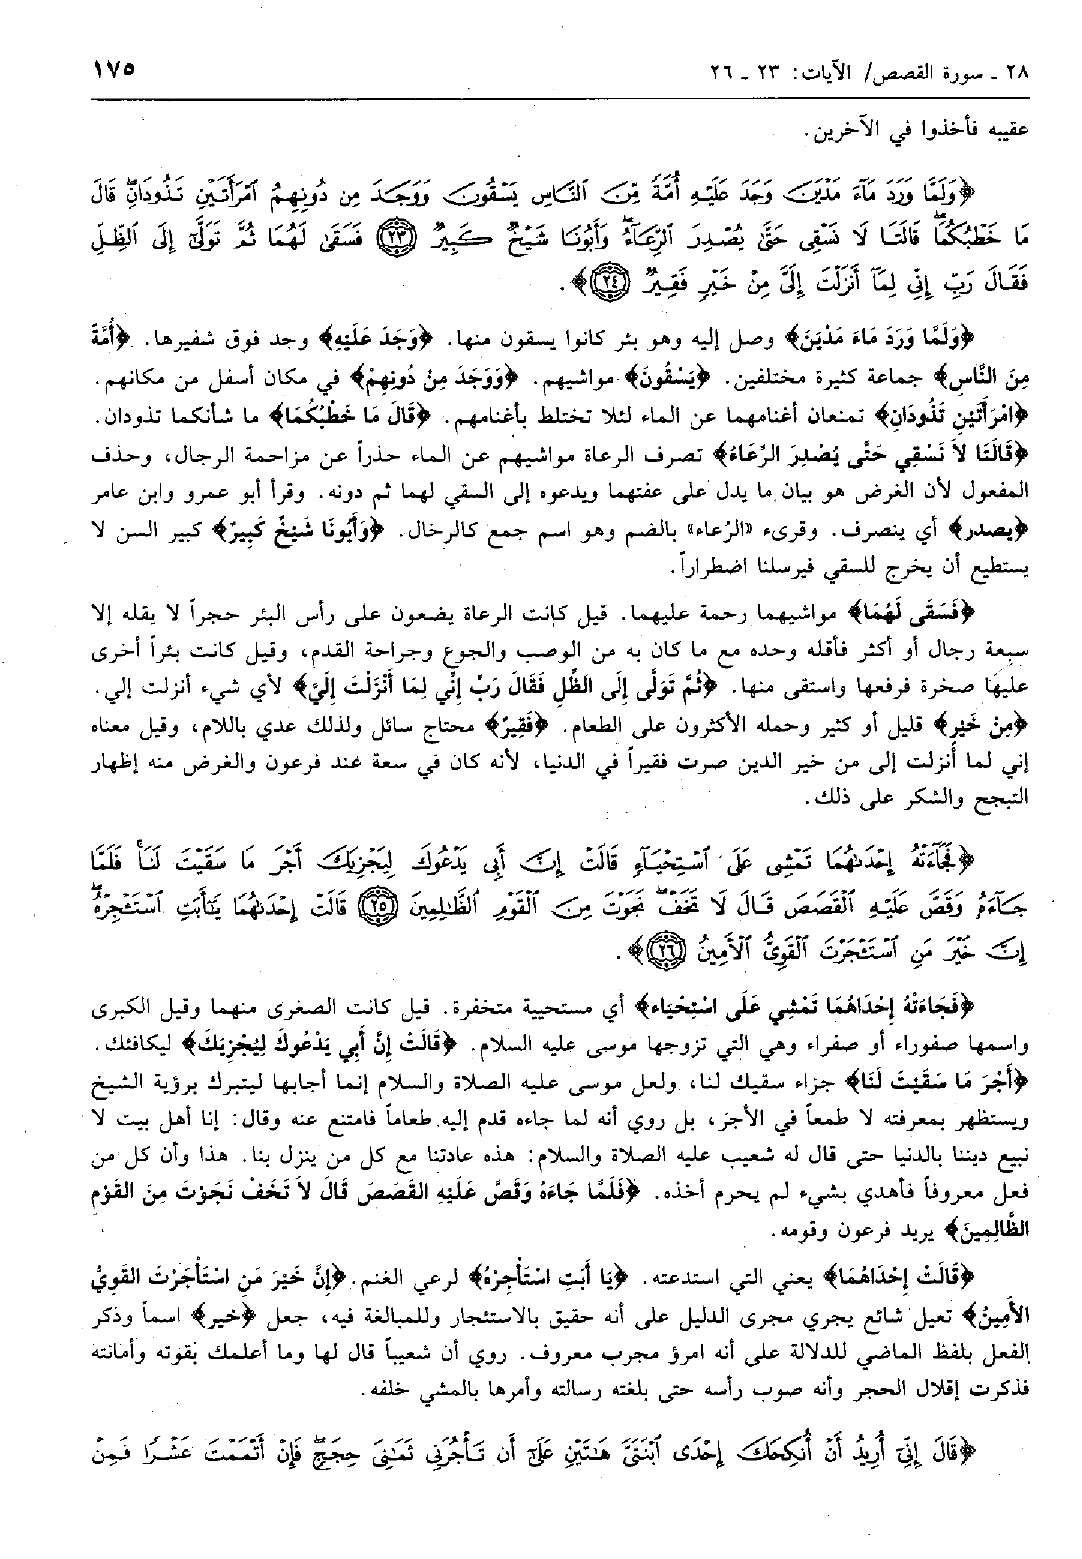 ٢٨ ـ سورة القصص/ الآيات: ٢٣ ـ ٢٦ ١٧٥
عقيبه فأخذوا في الآخرين.
﴿وَلَمَّا وَرَدَ مَآءَ مَدْيَنَ وَجَدَ عَلَيْهِ أُمَّةً مِّنَ ٱلنَّاسِ يَسْقُونَ وَوَجَدَ مِن دُونِهِمُ ٱمْرَأَتَيْنِ تَذُودَانِۖ قَالَ
مَا خَطْبُكُمَاۖ قَالَتَا لَا نَسْقِى حَتَّىٰ يُصْدِرَ ٱلرِّعَآءُۖ وَأَبُونَا شَيْخٌ كَبِيرٌ ﴿٢٣﴾ فَسَقَىٰ لَهُمَا ثُمَّ تَوَلَّىٰٓ إِلَى ٱلظِّلِّ
فَقَالَ رَبِّ إِنِّى لِمَآ أَنزَلْتَ إِلَىَّ مِنْ خَيْرٍ فَقِيرٌ ﴿٢٤﴾﴾.
﴿وَلَمَّا وَرَدَ مَاءَ مَدْيَنَ﴾ وصل إليه وهو بئر كانوا يسقون منها. ﴿وَجَدَ عَلَيْهِ﴾ وجد فوق شفيرها. ﴿أُمَّةً
مِنَ النَّاسِ﴾ جماعة كثيرة مختلفين. ﴿يَسْقُونَ﴾ مواشيهم. ﴿وَوَجَدَ مِنْ دُونِهِمُ﴾ في مكان أسفل من مكانهم.
﴿امْرَأَتَيْنِ تَذُودَانِ﴾ تمنعان أغنامهما عن الماء لئلا تختلط بأغنامهم. ﴿قَالَ مَا خَطْبُكُمَا﴾ ما شأنكما تذودان.
﴿قَالَتَا لاَ نَسْقِي حَتَّى يُصْدِرَ الرِّعَاءُ﴾ تصرف الرعاة مواشيهم عن الماء حذراً عن مزاحمة الرجال، وحذف
المفعول لأن الغرض هو بيان ما يدل على عفتهما ويدعوه إلى السقي لهما ثم دونه. وقرأ أبو عمرو وابن عامر
﴿يصدر﴾ أي ينصرف. وقرىء «الرُعاء» بالضم وهو اسم جمع كالرخال. ﴿وَأَبُونَا شَيْخٌ كَبِيرٌ﴾ كبير السن لا
يستطيع أن يخرج للسقي فيرسلنا اضطراراً.
﴿فَسَقَى لَهُمَا﴾ مواشيهما رحمة عليهما. قيل كانت الرعاة يضعون على رأس البئر حجراً لا يقله إلا
سبعة رجال أو أكثر فأقله وحده مع ما كان به من الوصب والجوع وجراحة القدم، وقيل كانت بئراً أخرى
عليها صخرة فرفعها واستقى منها. ﴿ثُمَّ تَوَلَّى إِلَى الظِّلِ فَقَالَ رَبِّ إِنِّي لِمَا أَنْزَلْتَ إِلَيَّ﴾ لأي شيء أنزلت إلي.
﴿مِنْ خَيْرٍ﴾ قليل أو كثير وحمله الأكثرون على الطعام. ﴿فَقِيرٌ﴾ محتاج سائل ولذلك عدي باللام، وقيل معناه
إني لما أنزلت إلى من خير الدين صرت فقيراً في الدنيا، لأنه كان في سعة عند فرعون والغرض منه إظهار
التبجح والشكر على ذلك.
﴿فَجَآءَتْهُ إِحْدَىٰهُمَا تَمْشِى عَلَى ٱسْتِحْيَآءٍ قَالَتْ إِنَّ أَبِى يَدْعُوكَ لِيَجْزِيَكَ أَجْرَ مَا سَقَيْتَ لَنَاۚ فَلَمَّا
جَآءَهُۥ وَقَصَّ عَلَيْهِ ٱلْقَصَصَ قَالَ لَا تَخَفْۖ نَجَوْتَ مِنَ ٱلْقَوْمِ ٱلظَّٰلِمِينَ ﴿٢٥﴾ قَالَتْ إِحْدَىٰهُمَا يَٰٓأَبَتِ ٱسْتَـْٔجِرْهُۖ
إِنَّ خَيْرَ مَنِ ٱسْتَـْٔجَرْتَ ٱلْقَوِىُّ ٱلْأَمِينُ ﴿٢٦﴾﴾.
﴿فَجَاءَتْهُ إِحْدَاهُمَا تَمْشِي عَلَى اسْتِحْيَاء﴾ أي مستحيية متخفرة. قيل كانت الصغرى منهما وقيل الكبرى
واسمها صفوراء أو صفراء وهي التي تزوجها موسى عليه السلام. ﴿قَالَتْ إِنَّ أَبِي يَدْعُوكَ لِيَجْزِيَكَ﴾ ليكافئك.
﴿أَجْرَ مَا سَقَيْتَ لَنَا﴾ جزاء سقيك لنا، ولعل موسى عليه الصلاة والسلام إنما أجابها ليتبرك برؤية الشيخ
ويستظهر بمعرفته لا طمعاً في الأجر، بل روي أنه لما جاءه قدم إليه طعاماً فامتنع عنه وقال: إنا أهل بيت لا
نبيع ديننا بالدنيا حتى قال له شعيب عليه الصلاة والسلام: هذه عادتنا مع كل من ينزل بنا. هذا وأن كل من
فعل معروفاً فأهدي بشيء لم يحرم أخذه. ﴿فَلَمَّا جَاءَهُ وَقَصَّ عَلَيْهِ القَصَصَ قَالَ لاَ تَخَفْ نَجَوْتَ مِنَ القَوْمِ
الظَّالِمِينَ﴾ يريد فرعون وقومه.
﴿قَالَتْ إِحْدَاهُمَا﴾ يعني التي استدعته. ﴿يَا أَبَتِ اسْتَأْجِرْهُ﴾ لرعي الغنم. ﴿إِنَّ خَيْرَ مَنِ اسْتَأْجَرْتَ القَوِيُّ
الأَمِينُ﴾ تعيل شائع يجري مجرى الدليل على أنه حقيق بالاستئجار وللمبالغة فيه، جعل ﴿خير﴾ اسماً وذكر
الفعل بلفظ الماضي للدلالة على أنه امرؤ مجرب معروف. روي أن شعيباً قال لها وما أعلمك بقوته وأمانته
فذكرت إقلال الحجر وأنه صوب رأسه حتى بلغته رسالته وأمرها بالمشي خلفه.
﴿قَالَ إِنِّىٓ أُرِيدُ أَنْ أُنكِحَكَ إِحْدَى ٱبْنَتَىَّ هَٰتَيْنِ عَلَىٰٓ أَن تَأْجُرَنِى ثَمَٰنِىَ حِجَجٍۖ فَإِنْ أَتْمَمْتَ عَشْرًا فَمِنْ